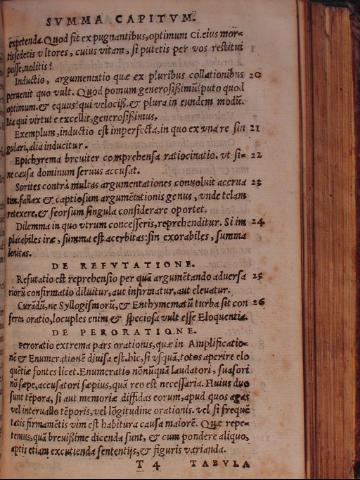 SVMMA CAPITVM.
expetendæ. Quod fit ex pugnantibus, optimum Ci. eius mor-
tis sedetis vltores, cuius vitam, si putetis per vos restitui
posse, nolitis?
Inductio, argumentatio que ex pluribus collationibus 20
peruenit quo vult. Quod pomum generosissimū? puto quod
optimum. & equus? qui velociss. & plura in eundem modū.
ita qui virtute excellit, generosissimus.
Exemplum, inductio est imperfecta, in quo ex vna re sin 21
gulari, alia inducitur.
Epichyrema breuiter comprehensa ratiocinatio. vt si- 22
ne causa dominum seruus accusat.
Sorites contrà multas argumentationes conuoluit acerua 23
tim. fallax & captiosum argumētationis genus, vnde telam
retexere, & seorsum singula considerare oportet.
Dilemma in quo vtrum concesseris, reprehenditur. Si im 24
placabiles iræ, summa est acerbitas: sin exorabiles, summa
leuitas.
DE REFVTATIONE.
Refutatio est reprehensio per quā argumētando aduersa 25
riorū confirmatio diluitur, aut infirmatur, aut eleuatur.
Curādū, ne Syllogismorū, & Enthymematū turba sit con 26
ferta oratio, locuples enim & speciosa vult esse Eloquentia.
DE PERORATIONE.
Peroratio extrema pars orationis, quæ in Amplificatio-
nē & Enumerationē diuisa est. hîc, si vsquā, totos aperire elo
quētiæ fontes licet. Enumeratio nonnūquā laudatori, suasori
nō sæpe, accusatori sæpius, quā reo est necessaria. Huius duo
sunt tēpora, si aut memoriæ diffidas eorum, apud quos agas
vel interuallo tēporis, vel lōgitudine orationis. vel si frequē
tatis firmamētis vim est habitura causa maiorē. Quæ repe-
temus, quā breuissime dicenda sunt, & cum pondere aliquo,
aptis etiam excutienda sententijs, & figuris varianda.
T 4 TABVLA